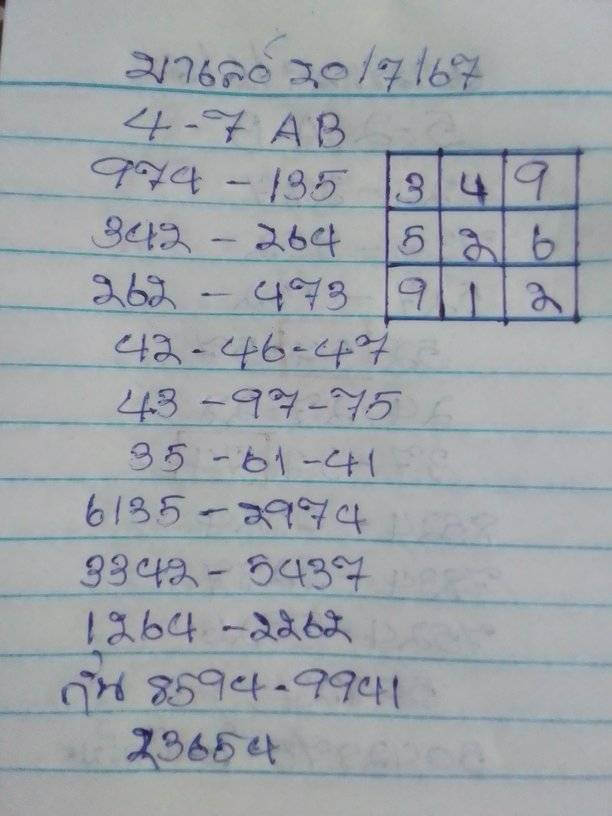 มาเลย์ 20/7/67
4-7 AB
974 - 135
342 - 264
262 - 473
3 4 9
5 2 6
9 1 2
42 - 46 - 47
43 - 97 - 75
35 - 61 - 41
6135 - 2974
3342 - 5437
1264 - 2262
8594 - 9941
23654